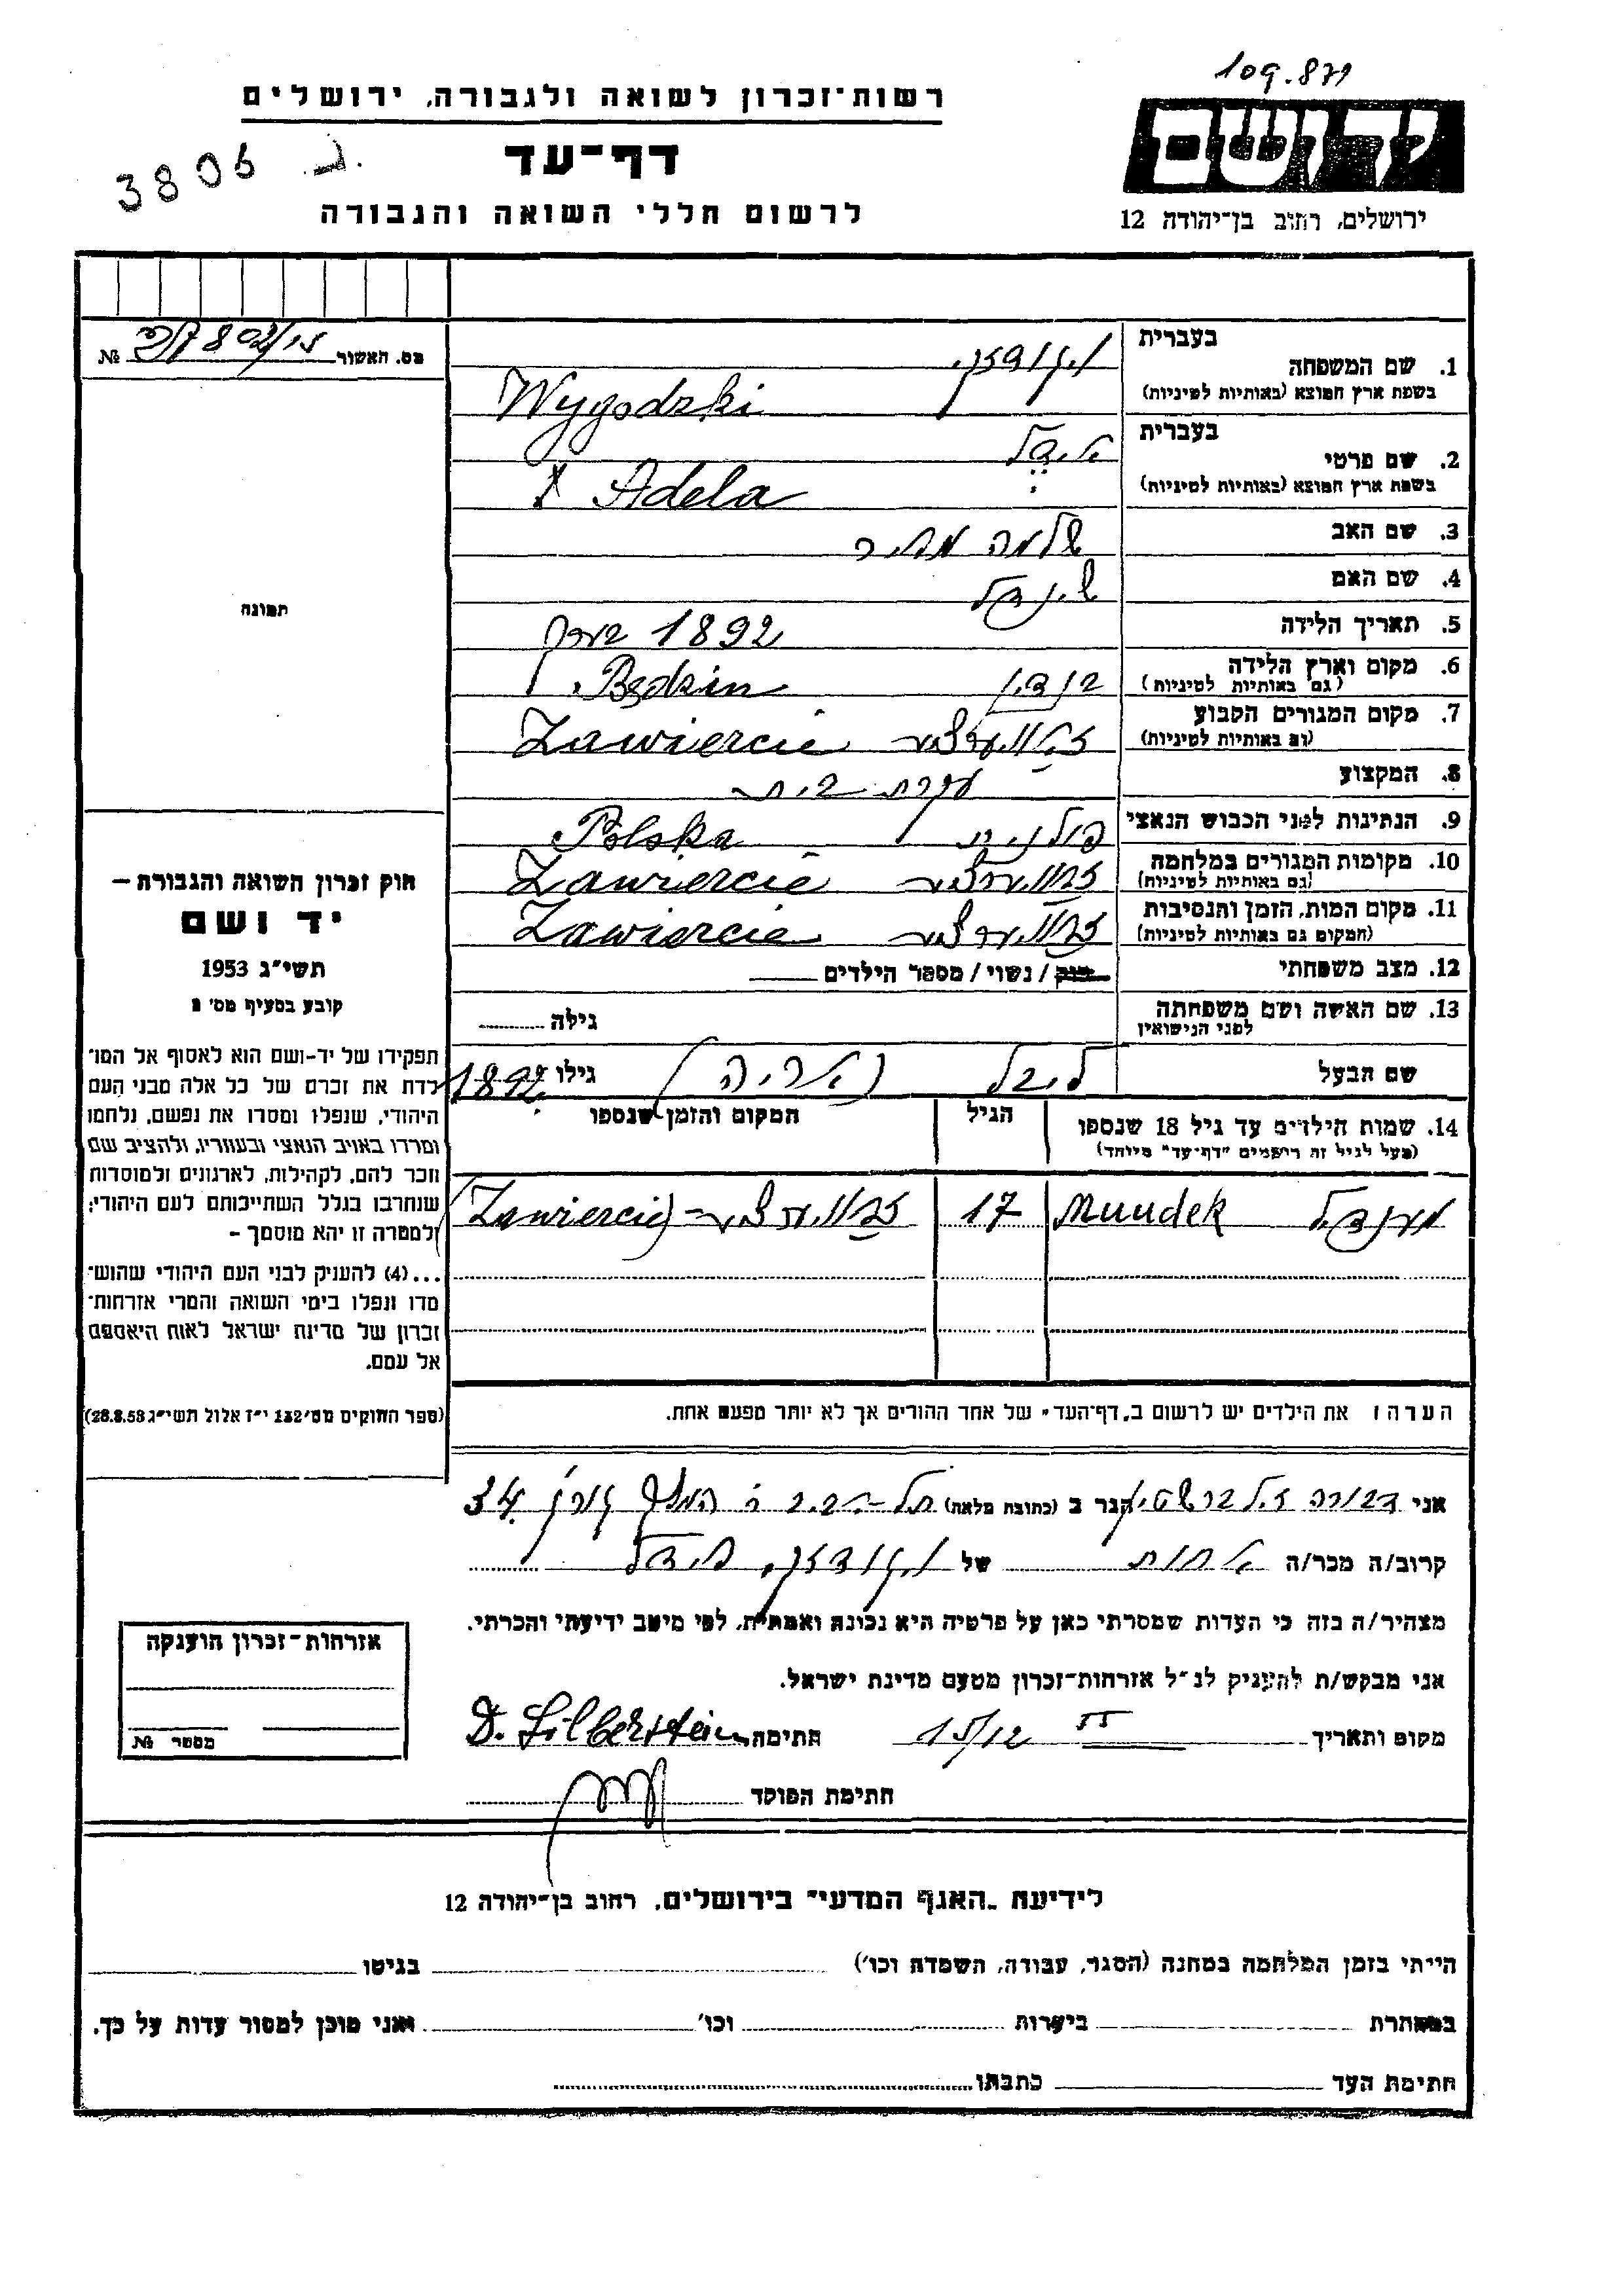 109.879
רשות־זכרון לשואה ולגבורה, ירושלים
ידושם
3806 ג.
דף־עד
לרשום חללי השואה והגבורה
ירושלים, רחוב בן־יהודה 12
מס. האשור № 
בעברית
1. שם המשפחה
בשפת ארץ המוצא (באותיות לטיניות) Wygodzki
בעברית
2. שם פרטי
בשפת ארץ המוצא (באותיות לטיניות) Adela
3. שם האב שלמה מאיר
4. שם האם שיינדל
5. תאריך הלידה 1892
6. מקום וארץ הלידה בנדין Będzin
(גם באותיות לטיניות)
7. מקום המגורים הקבוע Zawiercie
(גם באותיות לטיניות)
8. המקצוע עקרת בית
9. הנתינות לפני הכבוש הנאצי פולנית Polska
10. מקומות המגורים במלחמה Zawiercie
(גם באותיות לטיניות)
11. מקום המות, הזמן והנסיבות Zawiercie
(המקום גם באותיות לטיניות)
12. מצב משפחתי רוק / נשוי / מספר הילדים
13. שם האשה ושם משפחתה גילה
לפני הנישואין
שם הבעל לייבל (אריה) גילו 1892
14. שמות הילדים עד גיל 18 שנספו הגיל המקום והזמן שנספו
(מעל לגיל זה רישמים "דף־עד" מיוחד)
מענדל Mundek 17 Zawiercie
הערה: את הילדים יש לרשום ב"דף־העד" של אחד ההורים אך לא יותר מפעם אחת.
תמונה
חוק זכרון השואה והגבורה –
יד ושם
תשי"ג 1953
קובע בסעיף מס' 2
תפקידו של יד-ושם הוא לאסוף אל המו־
לדת את זכרם של כל אלה מבני העם
היהודי, שנפלו ומסרו את נפשם, נלחמו
ומרדו באויב הנאצי ובעוזריו, ולהציב שם
וזכר להם, לקהילות, לארגונים ולמוסדות
שנחרבו בגלל השתייכותם לעם היהודי;
ולמטרה זו יהא מוסמך –
...(4) להעניק לבני העם היהודי שהוש־
מדו ונפלו בימי השואה והמרי אזרחות־
זכרון של מדינת ישראל לאות היאספם
אל עמם.
(ספר החוקים מס' 132 י"ז אלול תשי"ג 28.8.53)
אני דבורה זילברשטיין הגר ב (כתובת מלאה) תל-אביב 34
קרוב/ה מכר/ה אחות של ויגודזקי
מצהיר/ה בזה כי העדות שמסרתי כאן על פרטיה היא נכונה ואמתית, לפי מיטב ידיעתי והכרתי.
אני מבקש/ת להעניק לנ"ל אזרחות־זכרון מטעם מדינת ישראל.
מקום ותאריך 15/12 חתימה D. Silberstein
חתימת הפוקד
אזרחות־זכרון הוענקה
מספר №
לידיעת "האגף המדעי" בירושלים, רחוב בן־יהודה 12
הייתי בזמן המלחמה במחנה (הסגר, עבודה, השמדה וכו') בגיטו
במחתרת ביערות וכו' ואני מוכן למסור עדות על כך.
חתימת העד כתבתו